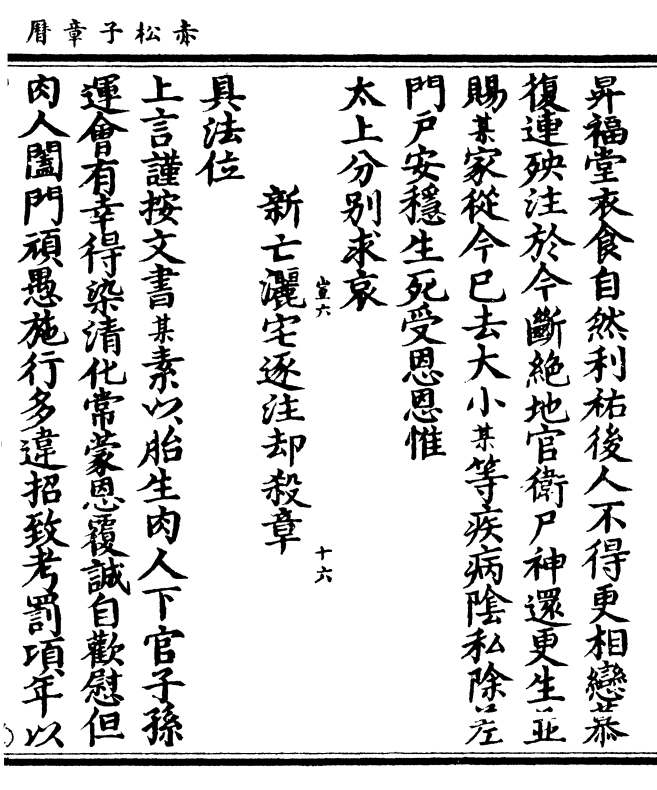 赤松子章曆
昇福堂衣食自然利祐後人不得更相戀慕
復連殃注於今斷絕地官衛尸神還更生並
賜某家從今已去大小某等疾病陰私除差
門戸安穩生死受恩恩惟
太上分别求哀
新亡灑宅逐注却殺章
豈六
十六
具法位
上言謹按文書某素以胎生肉人下官子孫
運會有幸得染清化常蒙恩覆誠自歡慰但
肉人闔門頑愚施行多違招致考罰項年以